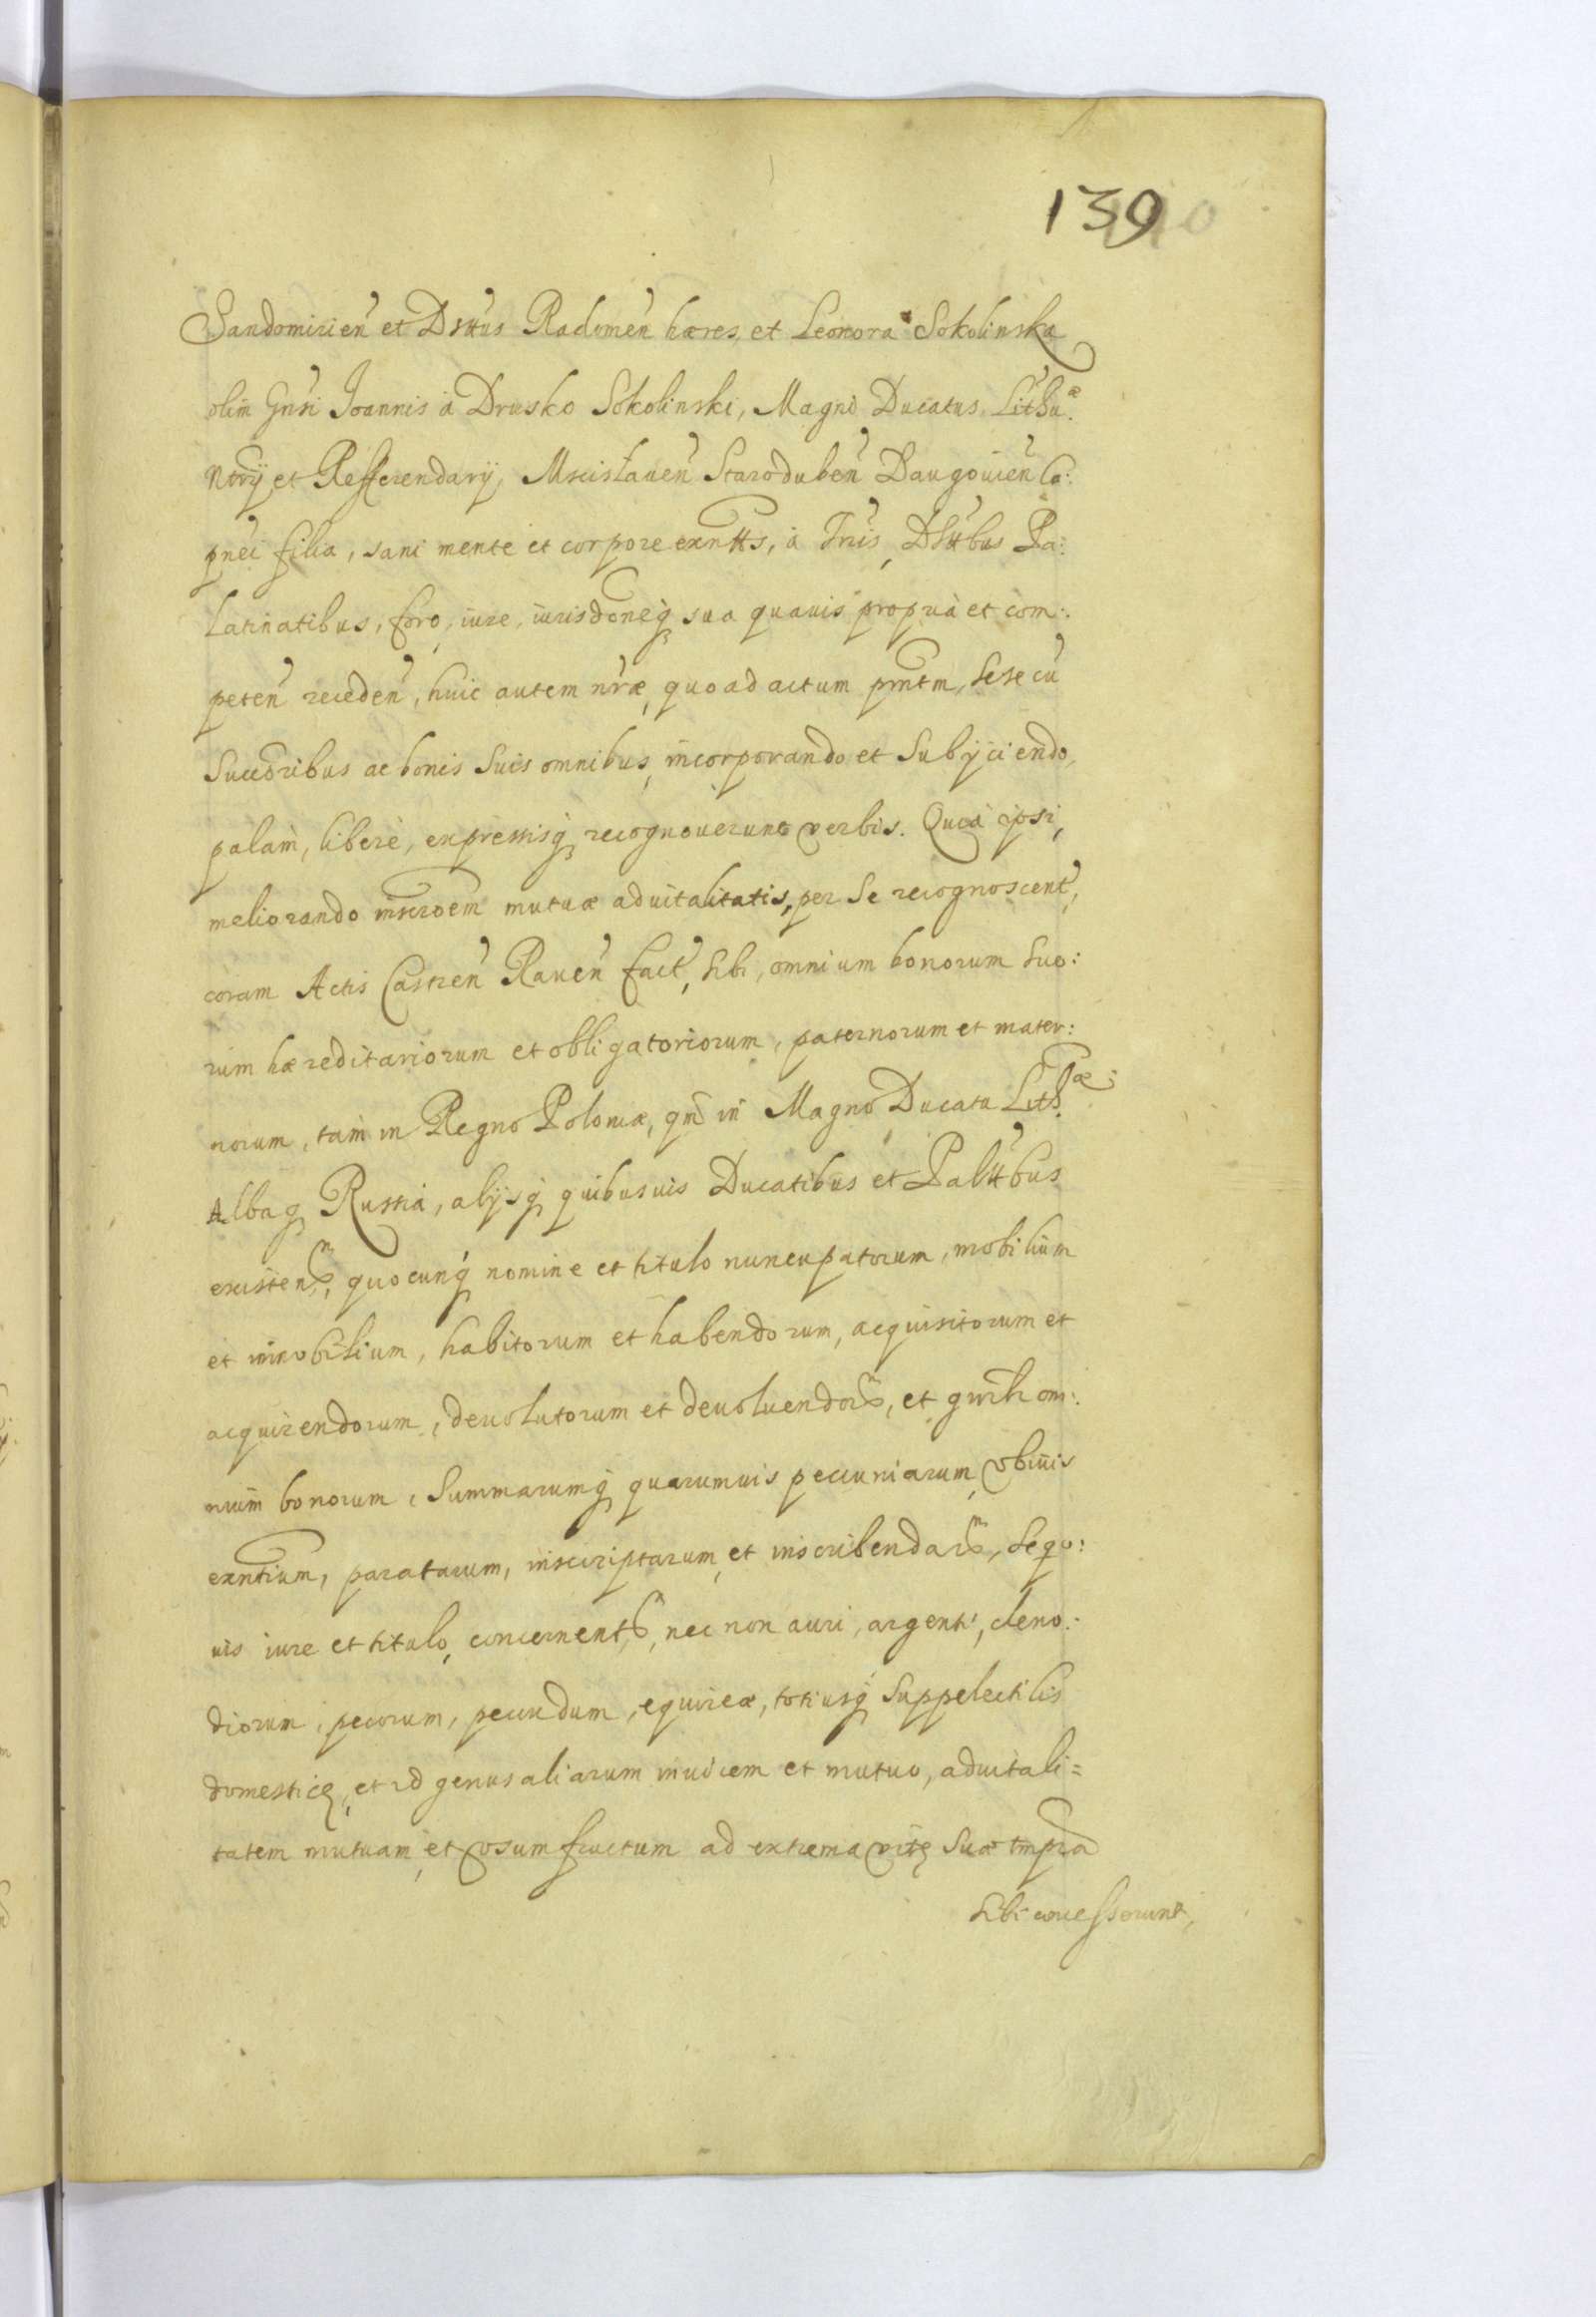 139
Sandomirien et Dsttus Radomen hæres, et Leonora Sokolinska
olim Gnsi Joannis à Drusko Sokolinski, Magni Ducatus Lithuæ.
Ntrij et Refferendarij, Mscislauen Staroduben Daugouien Ca:
pnei filia, sani mente et corpore exnttes, à Trris, Dsttbus Pa:
latinatibus, foro, iure, iurisdoneq sua quauis propria et com:
peten receden, huic autem nræ, quo ad actum pntem, Sese cu
Succoribus ac bonis Suis omnibus, incorporando et Subÿciendo,
palam, liberè, expressisq recognouerunt verbis. Quia ipsi,
meliorando inscroem mutuæ aduitalitatis, per Se recognoscent,
coram Actis Castren Rauen fact, Sibi, omnium bonorum Suo:
rum hæreditariorum et obligatoriorum, paternorum et mater:
norum, tam in Regno Poloniæ, qm in Magno Ducatu Lithæ:
Albaq Russia, alijsq quibusuis Ducatibus et Palttbus
existen, quocunq nomine et titulo nuncupatorum, mobilium
et imobilium, habitorum et habendorum, acquisitorum et
acquirendorum, deuolutorum et deuoluendorm, et gnrlr om:
nium bonorum, Summarumq quarumuis pecuniarum, vbiuis
exntium, paratarum, inscriptarum, et inscribendarm, Se quo:
uis iure et titulo, concernent, nec non auri, argenti, cleno:
diorum, pecorum, pecudum, equireæ, totiusq Suppelectilis
domesticę, et id genus aliarum inuicem et mutuo, aduitali=
tatem mutuam, et vsumfructum ad extrema vitę Suæ tmpra
Sibi concesserunt,